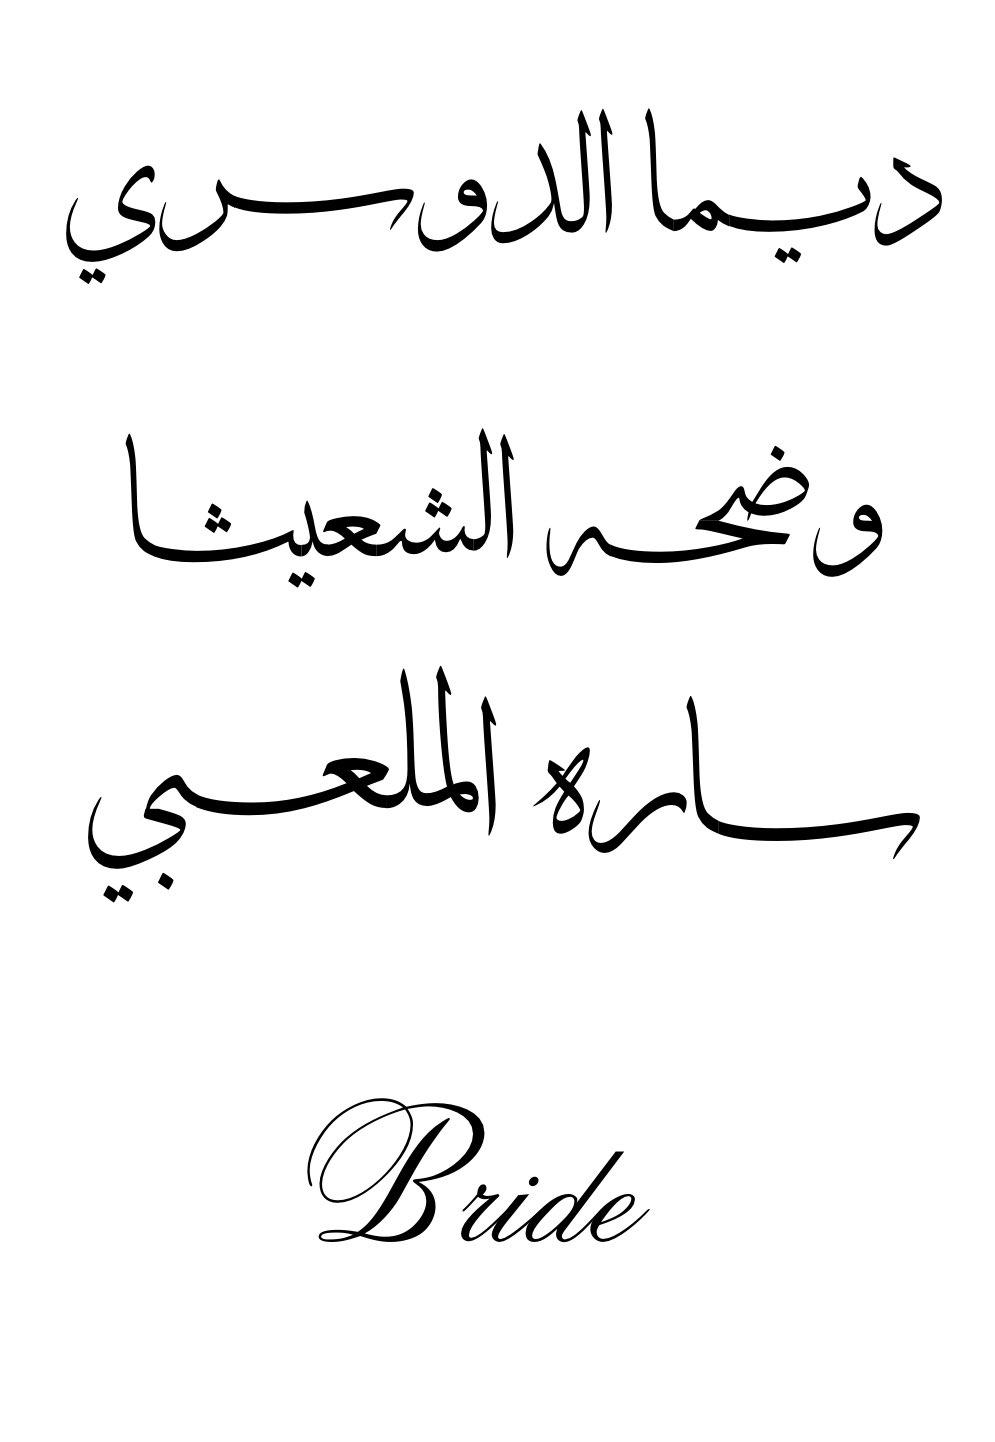 ديما الدوسري
وضحه الشعيثا
ساره الملعبي
Bride